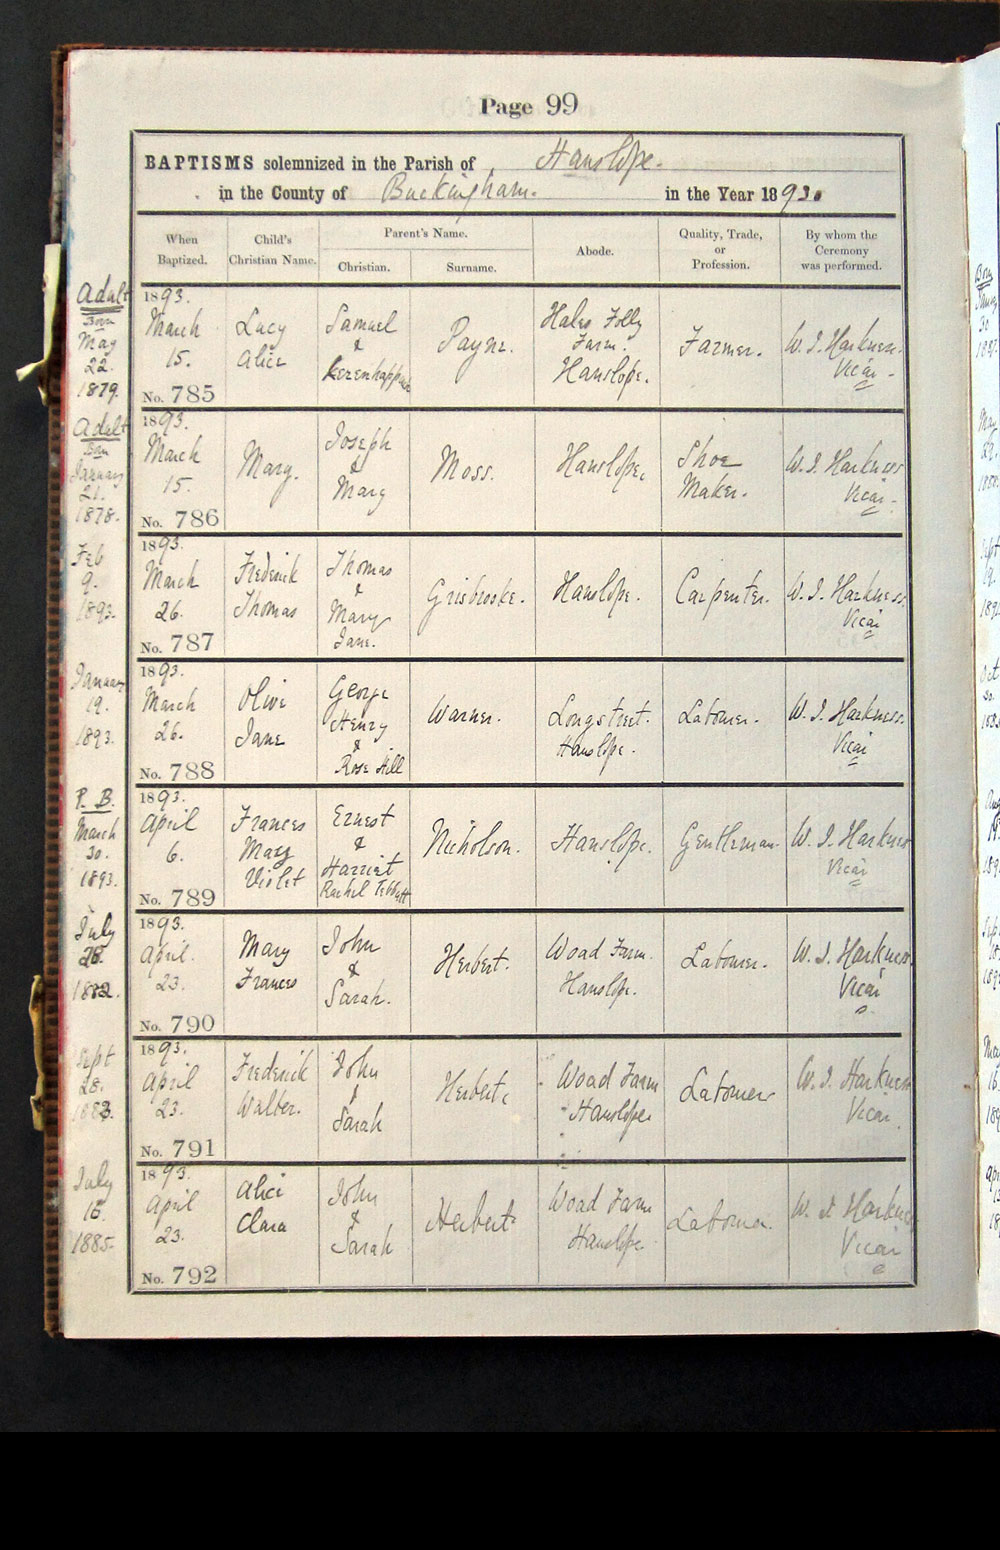 Page 99
BAPTISMS solemnized in the Parish of Hanslope.
in the County of Buckingham. in the Year 1893.
When Baptized.
Child's Christian Name.
Parent's Name.
Christian.
Surname.
Abode.
Quality, Trade, or Profession.
By whom the Ceremony was performed.
Adult
Born
May
22.
1879.
1893.
March
15.
No. 785
Lucy
Alice
Samuel
&
Kerenhappuch
Payne.
Hales Folly
Farm.
Hanslope.
Farmer.
W. J. Harkness.
Vicar.
Adult
Born
January
21.
1878.
1893.
March
15.
No. 786
Mary.
Joseph
&
Mary
Moss.
Hanslope.
Shoe
Maker.
W. J. Harkness
Vicar.
Feb
9.
1893.
1893.
March
26.
No. 787
Frederick
Thomas
Thomas
&
Mary
Jane.
Grisbrooke.
Hanslope.
Carpenter.
W. J. Harkness.
Vicar
January
19.
1893.
1893.
March
26.
No. 788
Olive
Jane
George
Henry
&
Rose Hill
Warner.
Longstreet.
Hanslope.
Labourer.
W. J. Harkness.
Vicar
P. B.
March
30.
1893.
1893.
April
6.
No. 789
Frances
Mary
Violet
Ernest
&
Harriet
Rachel Tebbutt
Nicholson.
Hanslope.
Gentleman.
W. J. Harkness
Vicar
July
1893.
April.
23.
No. 790
Mary
Frances
John
&
Sarah.
Herbert.
Woad Farm.
Hanslope.
Labourer.
W. J. Harkness.
Vicar
Sept
28.
1893.
April
23.
No. 791
Frederick
Walter.
John
&
Sarah
Herbert.
Woad Farm
Hanslope
Labourer
W. J. Harkness
Vicar.
July
1885.
1893.
April
23.
No. 792
Alice
Clara
John
&
Sarah
Herbert
Woad Farm
Hanslope
Labourer.
W. J. Harkness
Vicar